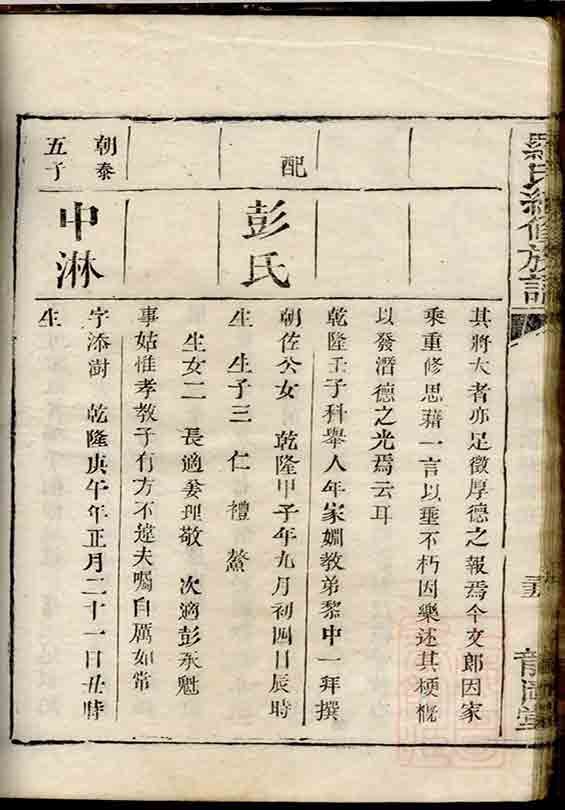 羅氏續修族譜
其將大者亦足徵厚德之報焉今文郎因家
乘重修思藉一言以垂不朽因樂述其梗槪
以發潛德之光焉云耳
乾隆壬子科舉人年家姻教弟黎中一拜撰
配
彭氏
朝佐公女 乾隆甲子年九月初四日辰時
生 生子三 仁 禮 鰲
生女二 長適 理敬 次適彭承魁
事姑惟孝教子有方不違夫囑自厲如常
朝泰
五子
中淋
字添澍 乾隆庚午年正月二十一日丑時
生